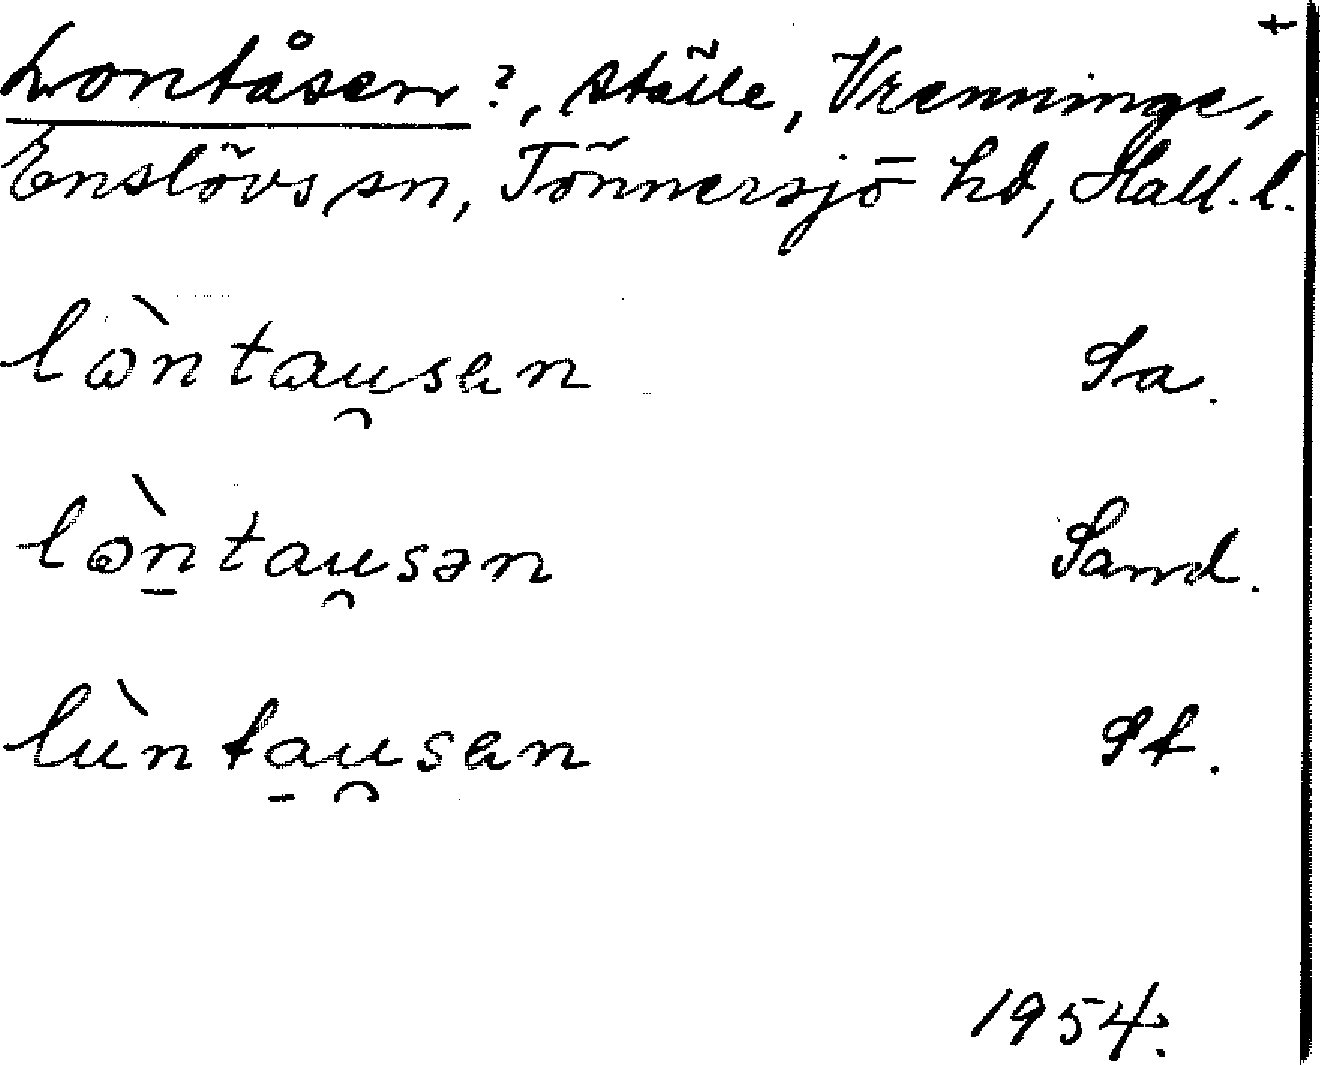 Lontåsen?, ställe, Vrenninge,
Enslövs sn, Tönnersjö hd, Hall. l.
lòntau̯sen Sa.
lòn̠tau̯sən Sand.
lùnta̠u̯sen St.
1954.